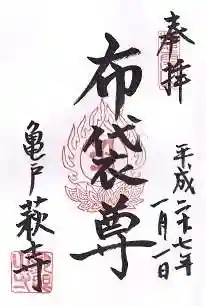 奉拝
平成二十七年
一月一日
布袋尊
亀戸
萩寺